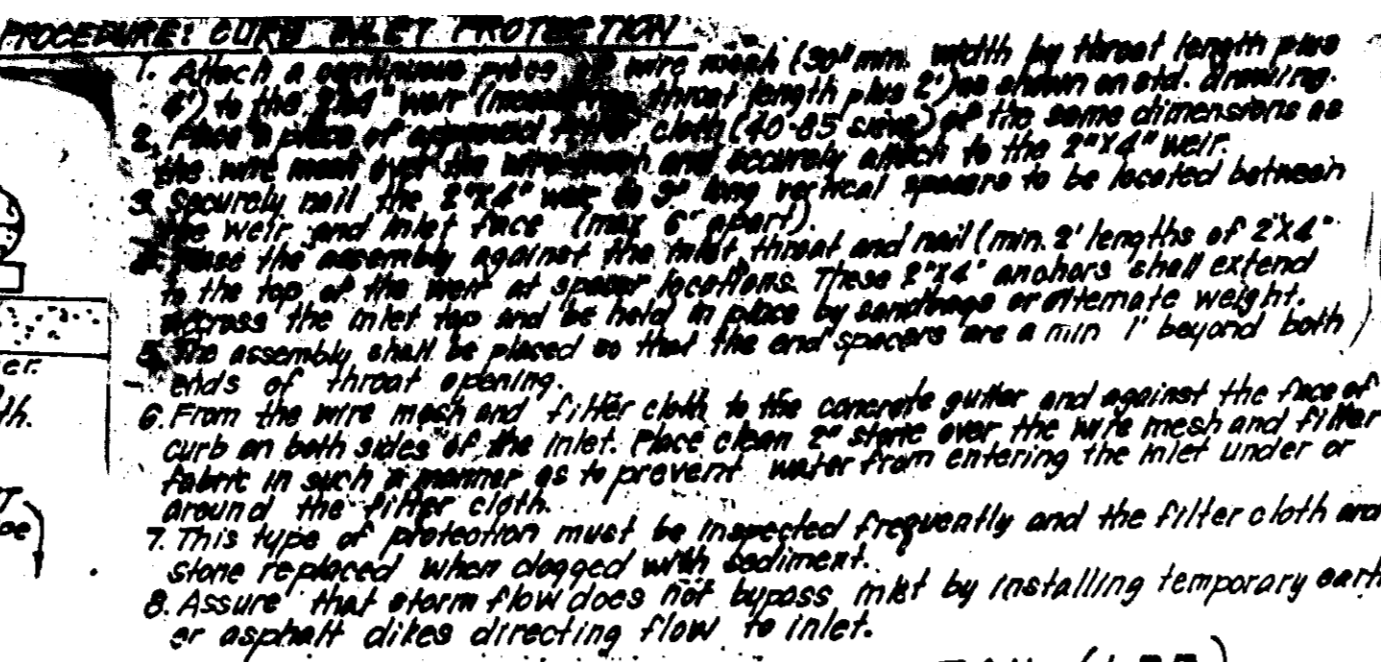 PROCEDURE: CURB INLET PROTECTION
1. Attach a continuous piece of wire mesh (30" min. width by throat length plus
4') to the 2"X4" weir (measuring throat length plus 2') as shown on std. drawing.
2. Place a piece of approved filter cloth (40-85 sieve) of the same dimensions as
the wire mesh over the wire mesh and securely attach to the 2"X4" weir.
3. Securely nail the 2"X4" weir to 9" long vertical spacers to be located between
the weir and inlet face (max 6' apart).
4. Place the assembly against the inlet throat and nail (min. 2' lengths of 2"X4"
to the top of the weir at spacer locations. These 2"X4" anchors shall extend
across the inlet top and be held in place by sandbags or alternate weight.
5. The assembly shall be placed so that the end spacers are a min 1' beyond both
ends of throat opening.
er.
th.
6. From the wire mesh and filter cloth to the concrete gutter and against the face of
curb on both sides of the inlet. Place clean 2" stone over the wire mesh and filter
fabric in such a manner as to prevent water from entering the inlet under or
around the filter cloth.
7. This type of protection must be inspected frequently and the filter cloth and
stone replaced when clogged with sediment.
8. Assure that storm flow does not bypass inlet by installing temporary earth
or asphalt dikes directing flow to inlet.